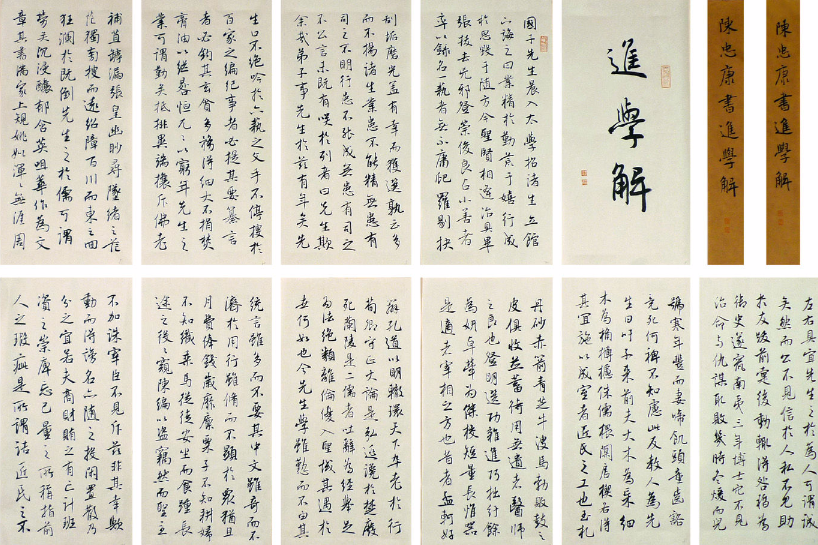 陳忠康書進學解
陳忠康書進學解
進學解
國子先生晨入太學招諸生立館
下誨之曰業精於勤荒于嬉行成
於思毀于隨方今聖賢相逢治具畢
張拔去兇邪登崇俊良占小善者
率以錄名一藝者無不庸爬羅剔抉
刮垢磨光蓋有幸而獲選孰云多
而不揚諸生業患不能精無患有
司之不明行患不能成無患有司之
不公言未既有笑於列者曰先生欺
余哉弟子事先生於茲有年矣先
生口不絕吟於六藝之文手不停披於
百家之編紀事者必提其要纂言
者必鉤其玄貪多務得細大不捐焚
膏油以繼晷恒兀兀以窮年先生之
業可謂勤矣觝排異端攘斥佛老
補苴罅漏張皇幽眇尋墜緒之茫
茫獨旁搜而遠紹障百川而東之回
狂瀾於既倒先生之於儒可謂
勞矣沉浸醲郁含英咀華作為文
章其書滿家上規姚姒渾渾無涯周
左右具宜先生之於為人可謂成
矣然而公不見信於人私不見助
於友跋前躓後動輒得咎暫為
御史遂竄南夷三年博士冗不見
治命與仇謀取敗幾時冬煖而兒
號寒年豐而妻啼飢頭童齒豁
竟死何裨不知慮此反教人為先
生曰吁子來前夫大木為杗細
木為桷欂櫨侏儒椳闑扂楔各得
其宜施以成室者匠氏之工也玉札
丹砂赤箭青芝牛溲馬勃敗鼓之
皮俱收並蓄待用無遺者醫師
之良也登明選公雜進巧拙紆餘
為妍卓犖為傑校短量長惟器
是適者宰相之方也昔者孟軻好
辯孔道以明轍環天下卒老於行
荀卿守正大論是弘逃讒於楚廢
死蘭陵是二儒者吐辭為經舉足
為法絕類離倫優入聖域其遇於
世何如也今先生學雖勤而不由其
統言雖多而不要其中文雖奇而不
濟於用行雖修而不顯於眾猶且
月費俸錢歲靡廩粟子不知耕婦
不知織乘馬從徒安坐而食踵常
途之役役窺陳編以盜竊然而聖主
不加誅宰臣不見斥茲非其幸歟
動而得謗名亦隨之投閒置散乃
分之宜若夫商財賄之有亡計班
資之崇庳忘己量之所稱指前
人之瑕疵是所謂詰匠氏之不